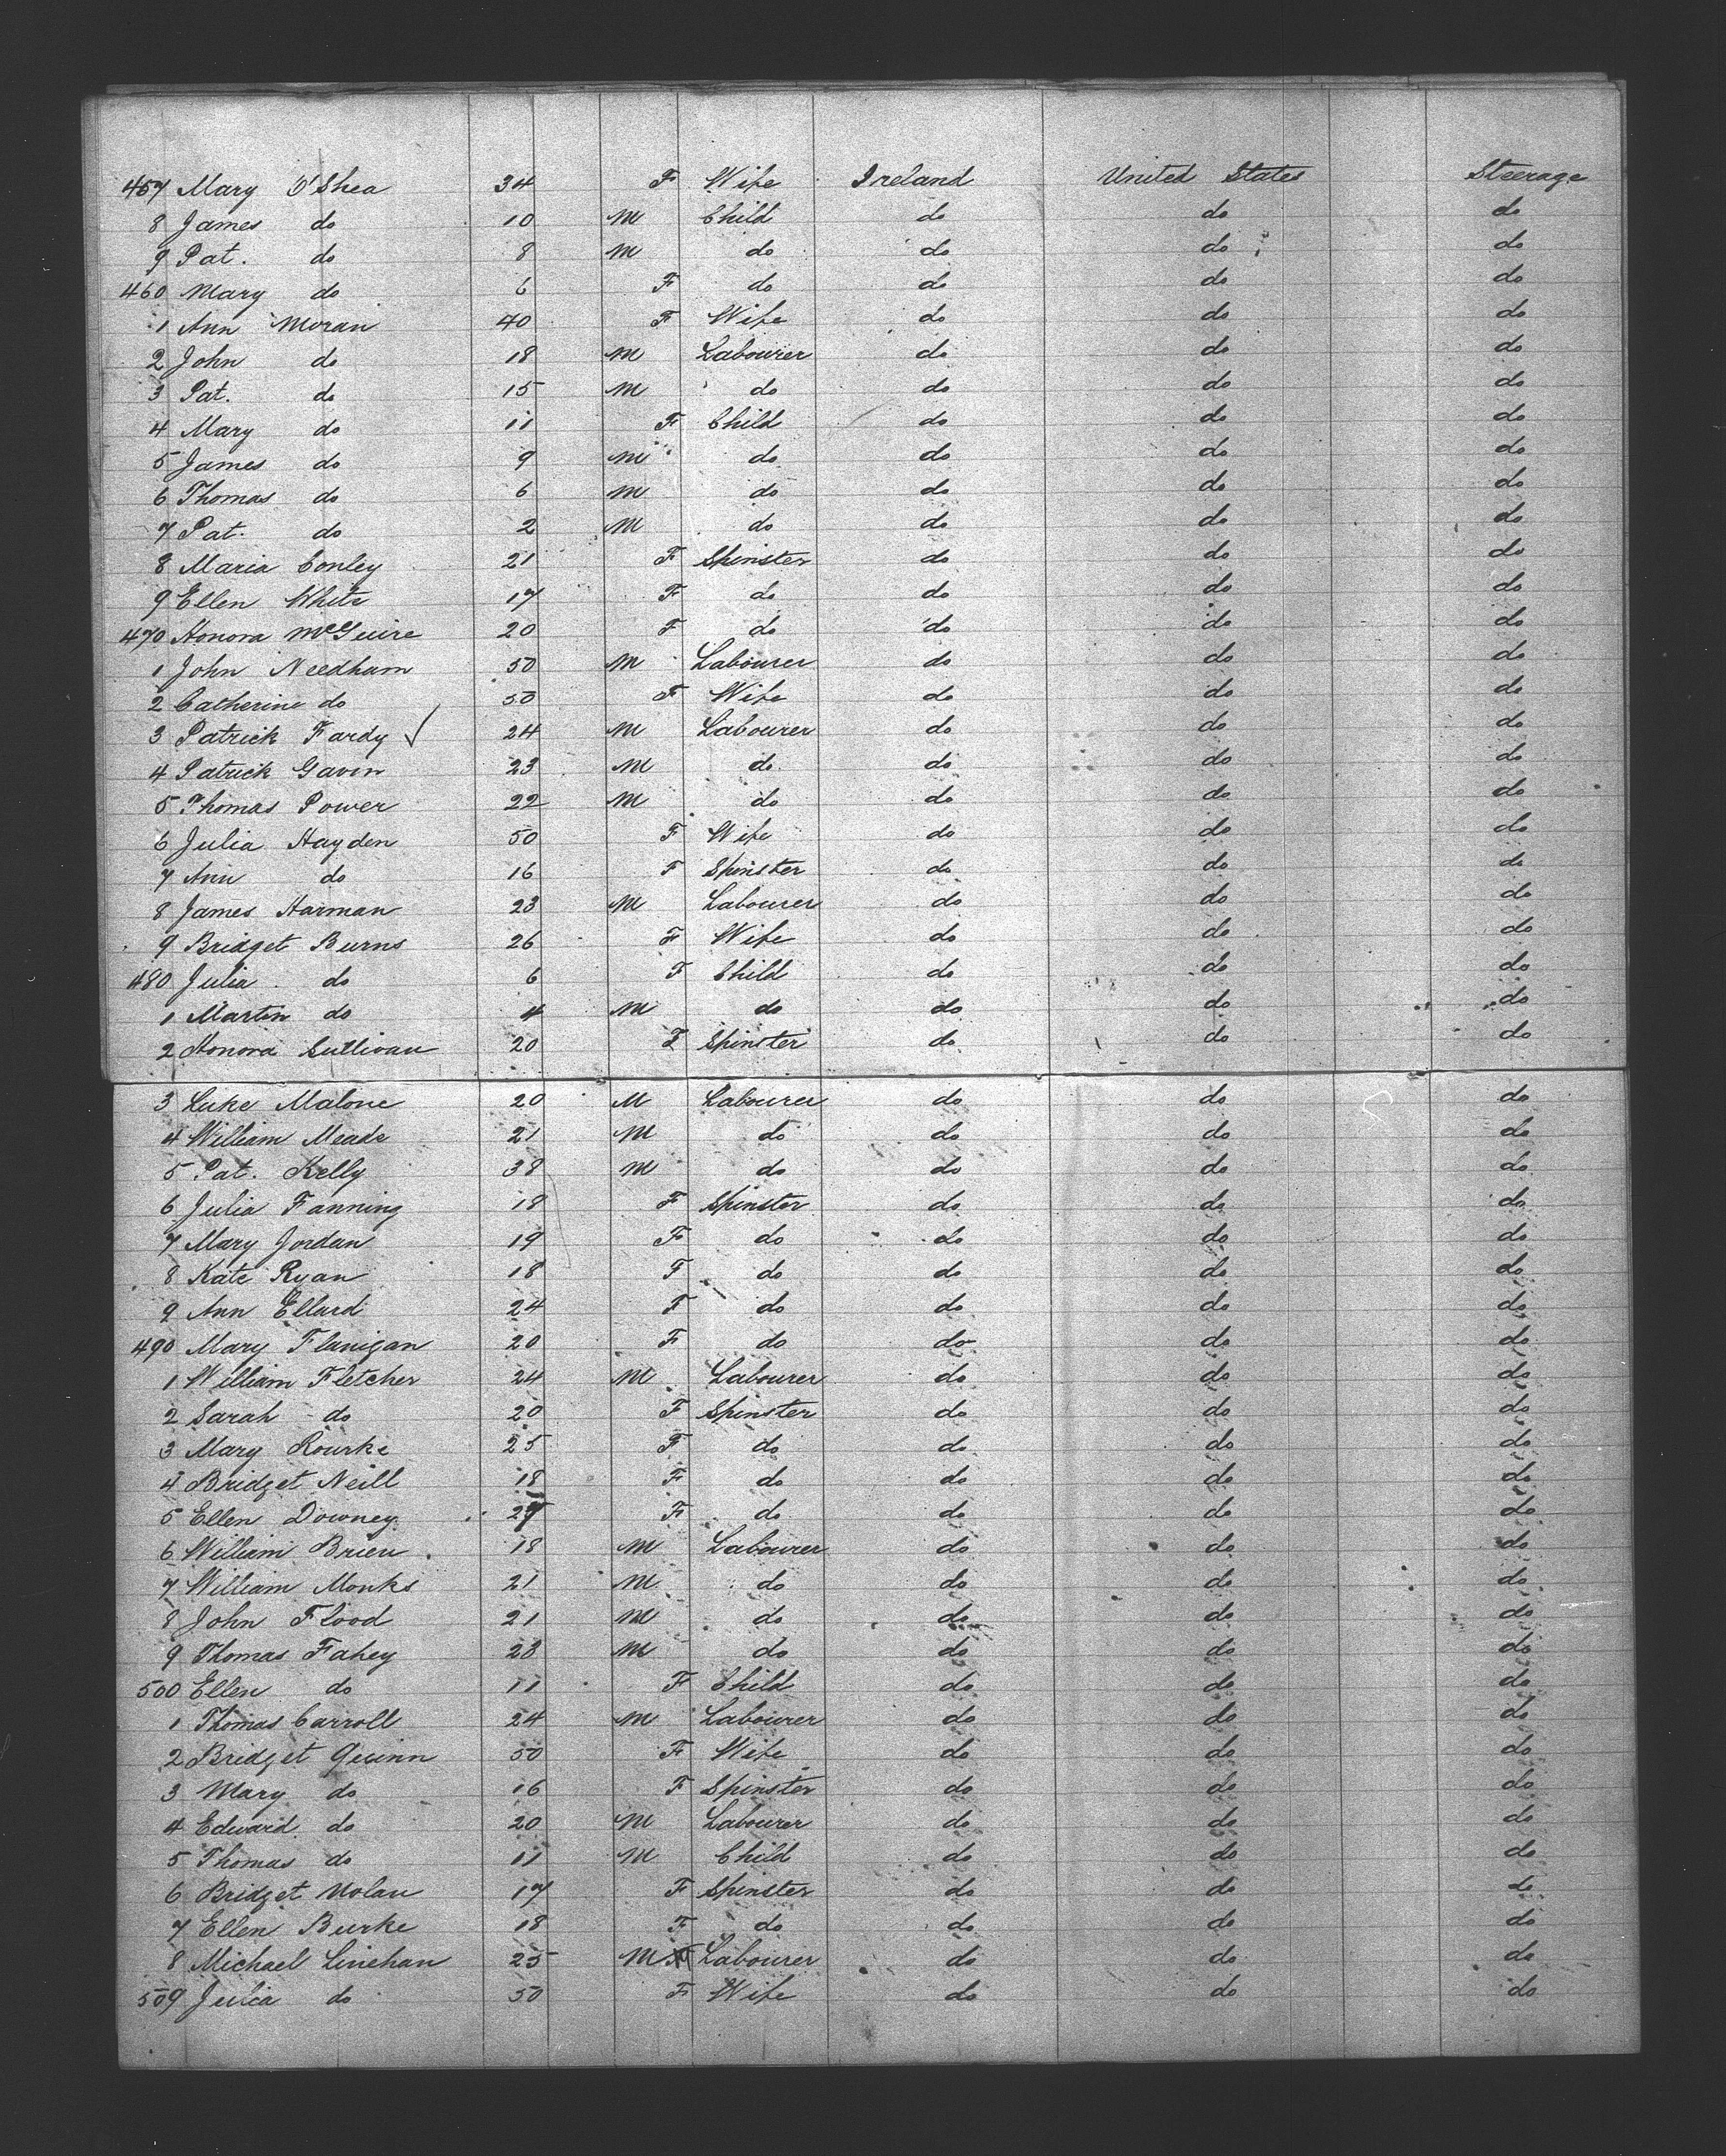 457 Mary O'Shea 34 F Wife Ireland United States Steerage
8 James do 10 M Child do do do
9 Pat. do 8 M do do do do
460 Mary do 6 F do do do do
1 Ann Moran 40 F Wife do do do
2 John do 18 M Labourer do do do
3 Pat. do 15 M do do do do
4 Mary do 11 F Child do do do
5 James do 9 M do do do do
6 Thomas do 6 M do do do do
7 Pat. do 2 M do do do do
8 Maria Conley 21 F Spinster do do do
9 Ellen White 17 F do do do do
470 Honora McGuire 20 F do do do do
1 John Needham 50 M Labourer do do do
2 Catherine do 50 F Wife do do do
3 Patrick Fardy ✓ 24 M Labourer do do do
4 Patrick Gavin 23 M do do do do
5 Thomas Power 22 M do do do do
6 Julia Hayden 50 F Wife do do do
7 Ann do 16 F Spinster do do do
8 James Harman 23 M Labourer do do do
9 Bridget Burns 26 F Wife do do do
480 Julia do 6 F Child do do do
1 Martin do 4 M do do do do
2 Honora Sullivan 20 F Spinster do do do
3 Luke Malone 20 M Labourer do do do
4 William Meade 21 M do do do do
5 Pat. Kelly 38 M do do do do
6 Julia Fanning 18 F Spinster do do do
7 Mary Jordan 19 F do do do do
8 Kate Ryan 18 F do do do do
9 Ann Ellard 24 F do do do do
490 Mary Flanigan 20 F do do do do
1 William Fletcher 24 M Labourer do do do
2 Sarah do 20 F Spinster do do do
3 Mary Rourke 25 F do do do do
4 Bridget Neill 18 F do do do do
5 Ellen Downey 27 F do do do do
6 William Brien 18 M Labourer do do do
7 William Monks 21 M do do do do
8 John Flood 21 M do do do do
9 Thomas Fahey 23 M do do do do
500 Ellen do 11 F Child do do do
1 Thomas Carroll 24 M Labourer do do do
2 Bridget Quinn 50 F Wife do do do
3 Mary do 16 F Spinster do do do
4 Edward do 20 M Labourer do do do
5 Thomas do 11 M Child do do do
6 Bridget Nolan 17 F Spinster do do do
7 Ellen Burke 18 F do do do do
8 Michael Linehan 25 M Labourer do do do
509 Julia do 50 F Wife do do do